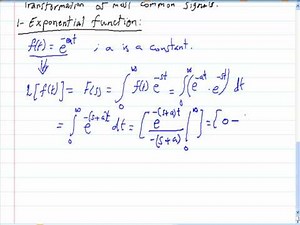 Transformation of most common signals.
1- Exponential function:
f(t) = e^{-at} ; a is a constant.
L[f(t)] = F(s) = ∫_0^∞ f(t) e^{-st} = ∫_0^∞ (e^{-at} . e^{-st}) dt
= ∫_0^∞ e^{-(s+a)t} dt = [ e^{-(s+a)t} / -(s+a) |_0^∞ ] = [ 0 -